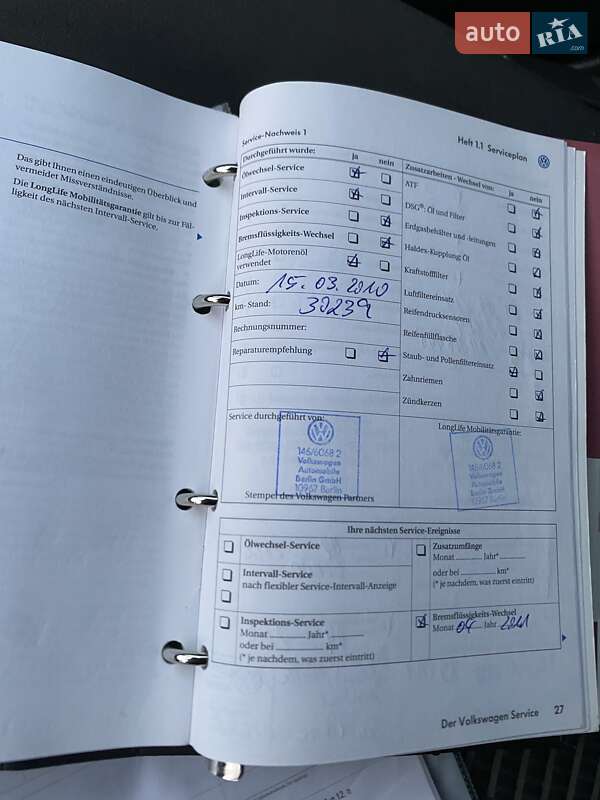 auto RIA.com
Das gibt Ihnen einen eindeutigen Überblick und
vermeidet Missverständnisse.
Die LongLife Mobilitätsgarantie gilt bis zur Fäl-
ligkeit des nächsten Intervall-Service.
Service-Nachweis 1
Heft 1.1 Serviceplan
Durchgeführt wurde:
ja nein
Ölwechsel-Service
Intervall-Service
Inspektions-Service
Bremsflüssigkeits-Wechsel
LongLife-Motorenöl
verwendet
Datum: 15.03.2010
km-Stand: 30239
Rechnungsnummer:
Reparaturempfehlung
Zusatzarbeiten - Wechsel von:
ja nein
ATF
DSG®: Öl und Filter
Erdgasbehälter und -leitungen
Haldex-Kupplung: Öl
Kraftstofffilter
Luftfiltereinsatz
Reifendrucksensoren
Reifenfüllflasche
Staub- und Pollenfiltereinsatz
Zahnriemen
Zündkerzen
Service durchgeführt von:
146/6068 2
Volkswagen
Automobile
Berlin GmbH
10967 Berlin
Stempel des Volkswagen Partners
LongLife Mobilitätsgarantie:
146/6068 2
Volkswagen
Automobile
Berlin GmbH
10967 Berlin
Ihre nächsten Service-Ereignisse
Ölwechsel-Service
Intervall-Service
nach flexibler Service-Intervall-Anzeige
Inspektions-Service
Monat Jahr*
oder bei km*
(* je nachdem, was zuerst eintritt)
Zusatzumfänge
Monat Jahr*
oder bei km*
(* je nachdem, was zuerst eintritt)
Bremsflüssigkeits-Wechsel
Monat 04 Jahr 2011
Der Volkswagen Service 27